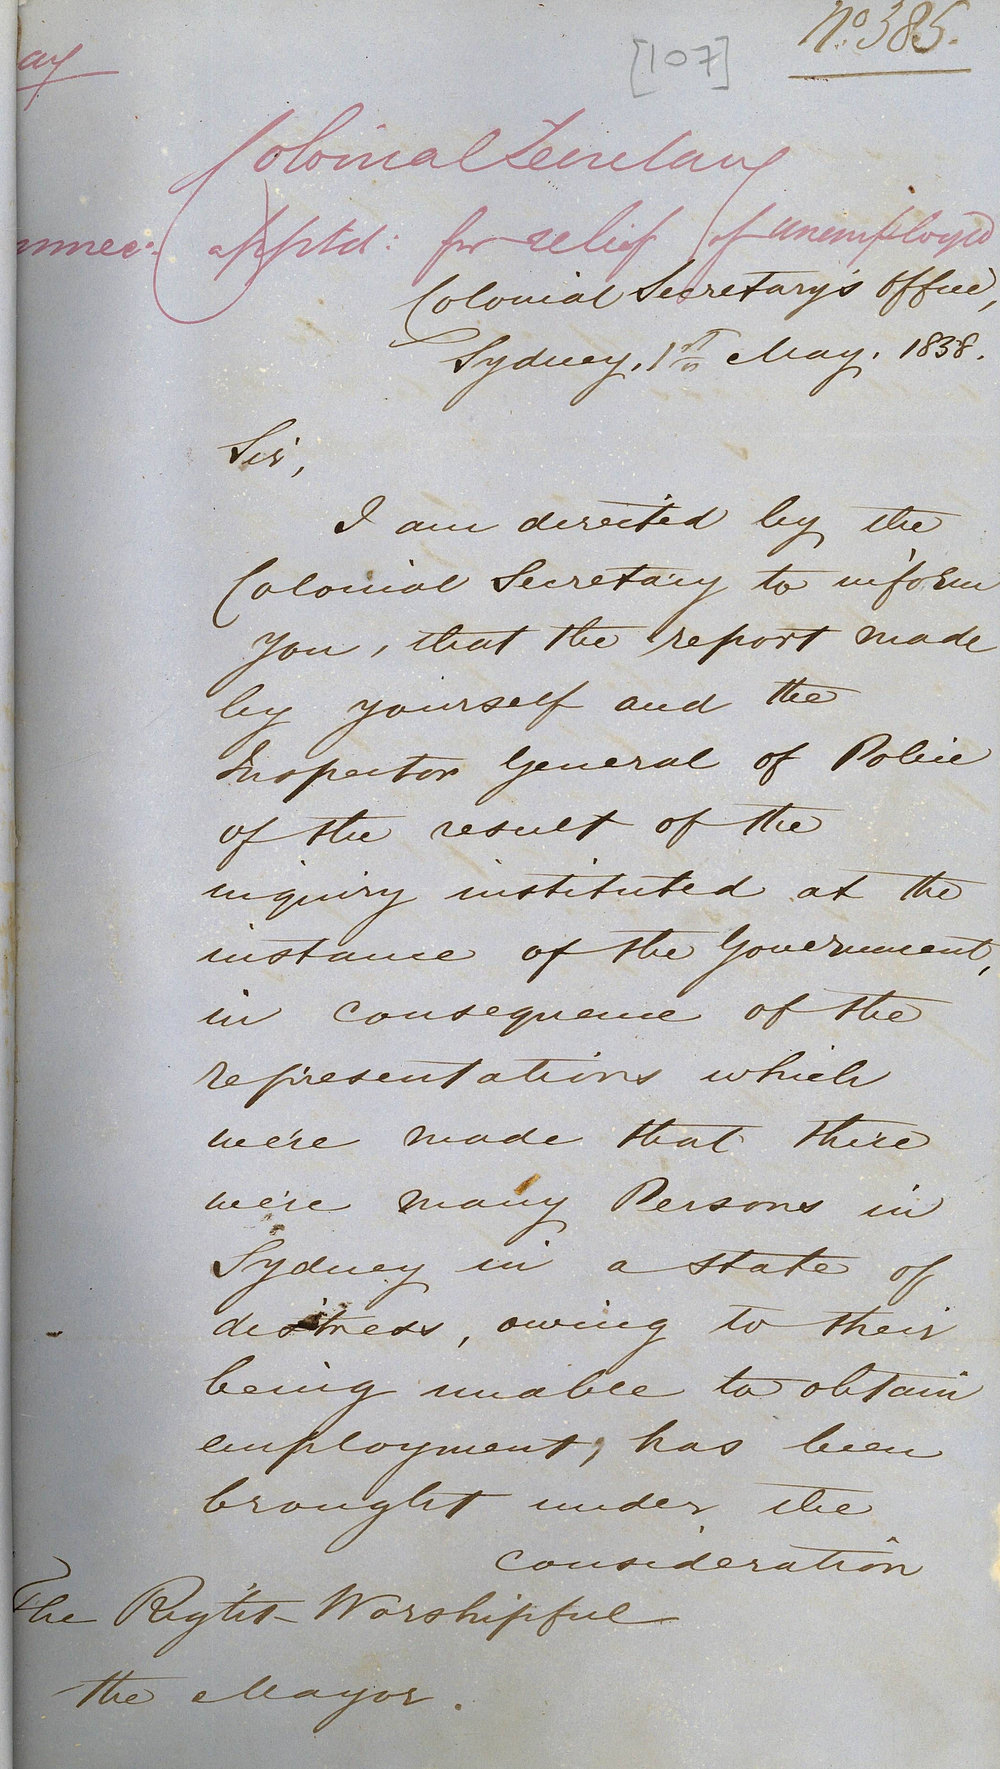 No. 385.
[107]
ay
Colonial Secretary
apptd: for relief of unemployed
Colonial Secretary's Office,
Sydney, 1st May. 1858.
Sir,
I am directed by the
Colonial Secretary to inform
you, that the report made
by yourself and the
Inspector General of Police
of the result of the
inquiry instituted at the
instance of the Government,
in consequence of the
representations which
were made that there
were many Persons in
Sydney in a state of
distress, owing to their
being unable to obtain
employment, has been
brought under the
consideration
The Right Worshipful
the Mayor.